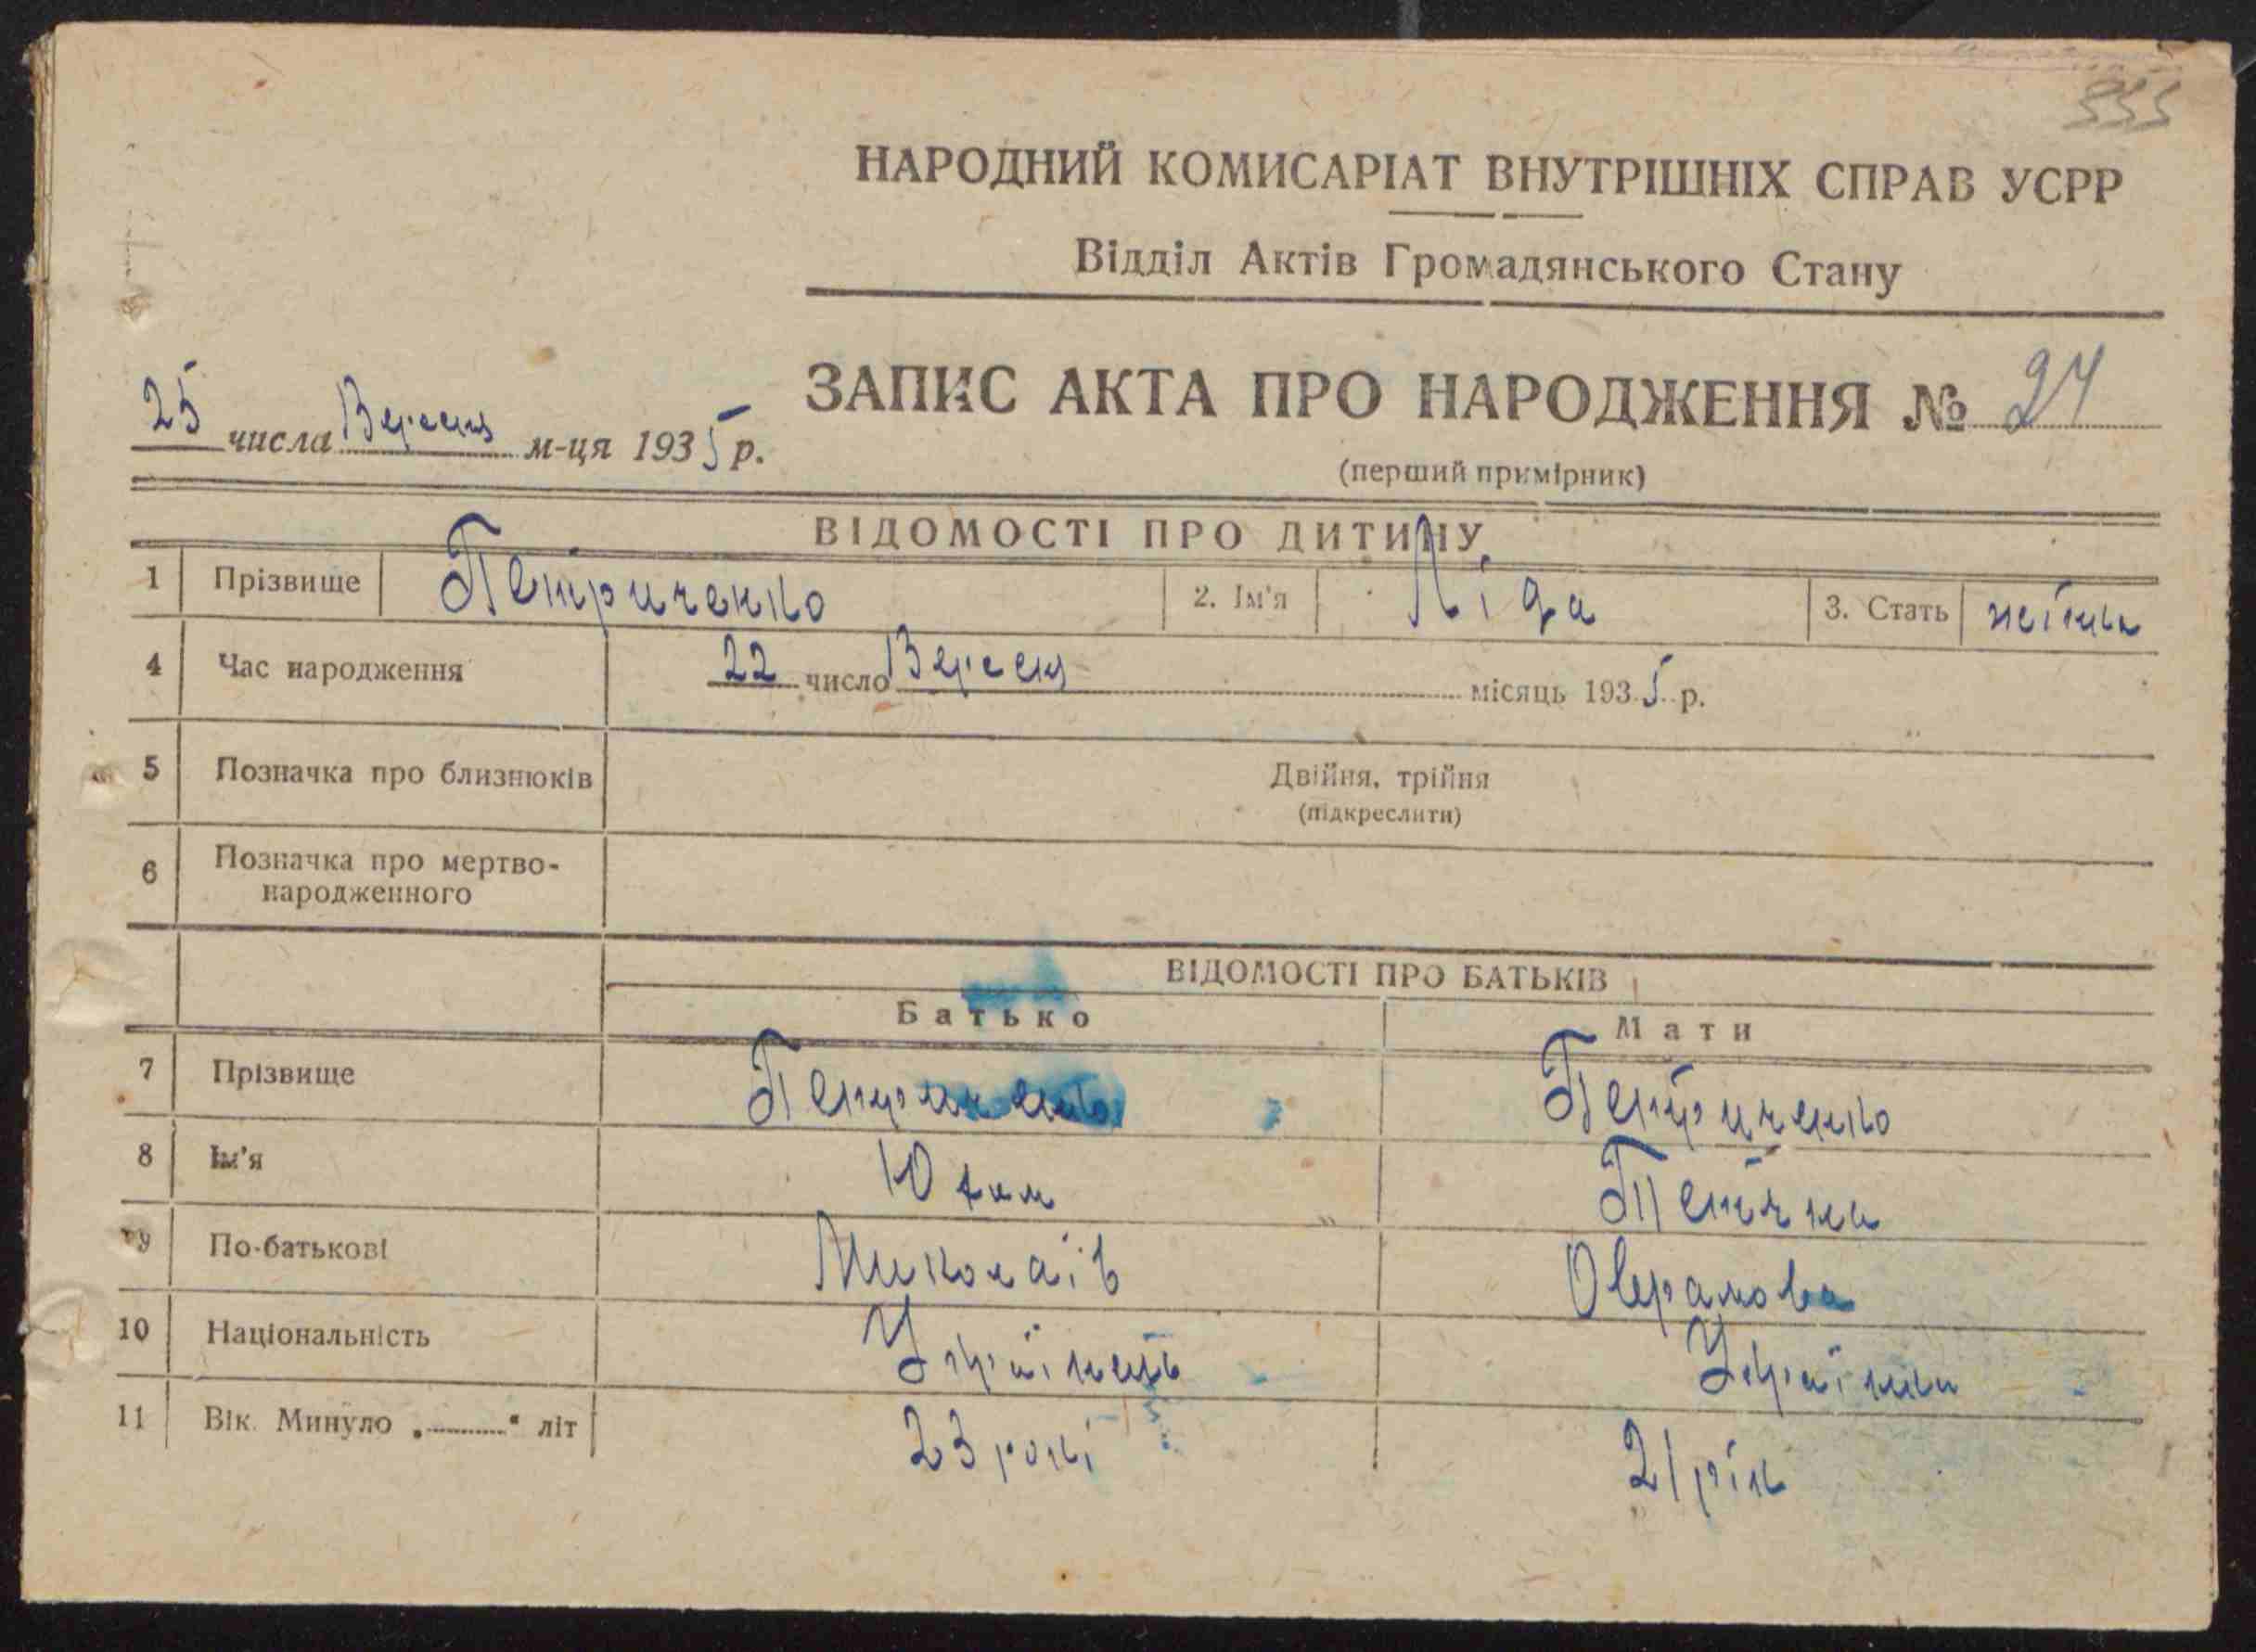 333
НАРОДНИЙ КОМИСАРІАТ ВНУТРІШНІХ СПРАВ УСРР
Відділ Актів Громадянського Стану
ЗАПИС АКТА ПРО НАРОДЖЕННЯ № 24
25 числа Вересня м-ця 1935 р.
(перший примірник)
ВІДОМОСТІ ПРО ДИТИНУ
1 Прізвище Петриченко 2. Ім'я Ліда 3. Стать жіноч
4 Час народження 22 число Вересня місяць 1935 р.
5 Позначка про близнюків Двійня, трійня
(підкреслити)
6 Позначка про мертво-
народженного
ВІДОМОСТІ ПРО БАТЬКІВ
Батько Мати
7 Прізвище Петриченко Петриченко
8 Ім'я Тетяна
9 По-батькові Миколаїв
10 Національність Українець Українка
11 Вік. Минуло „ “ літ 23 рокі 21 рік